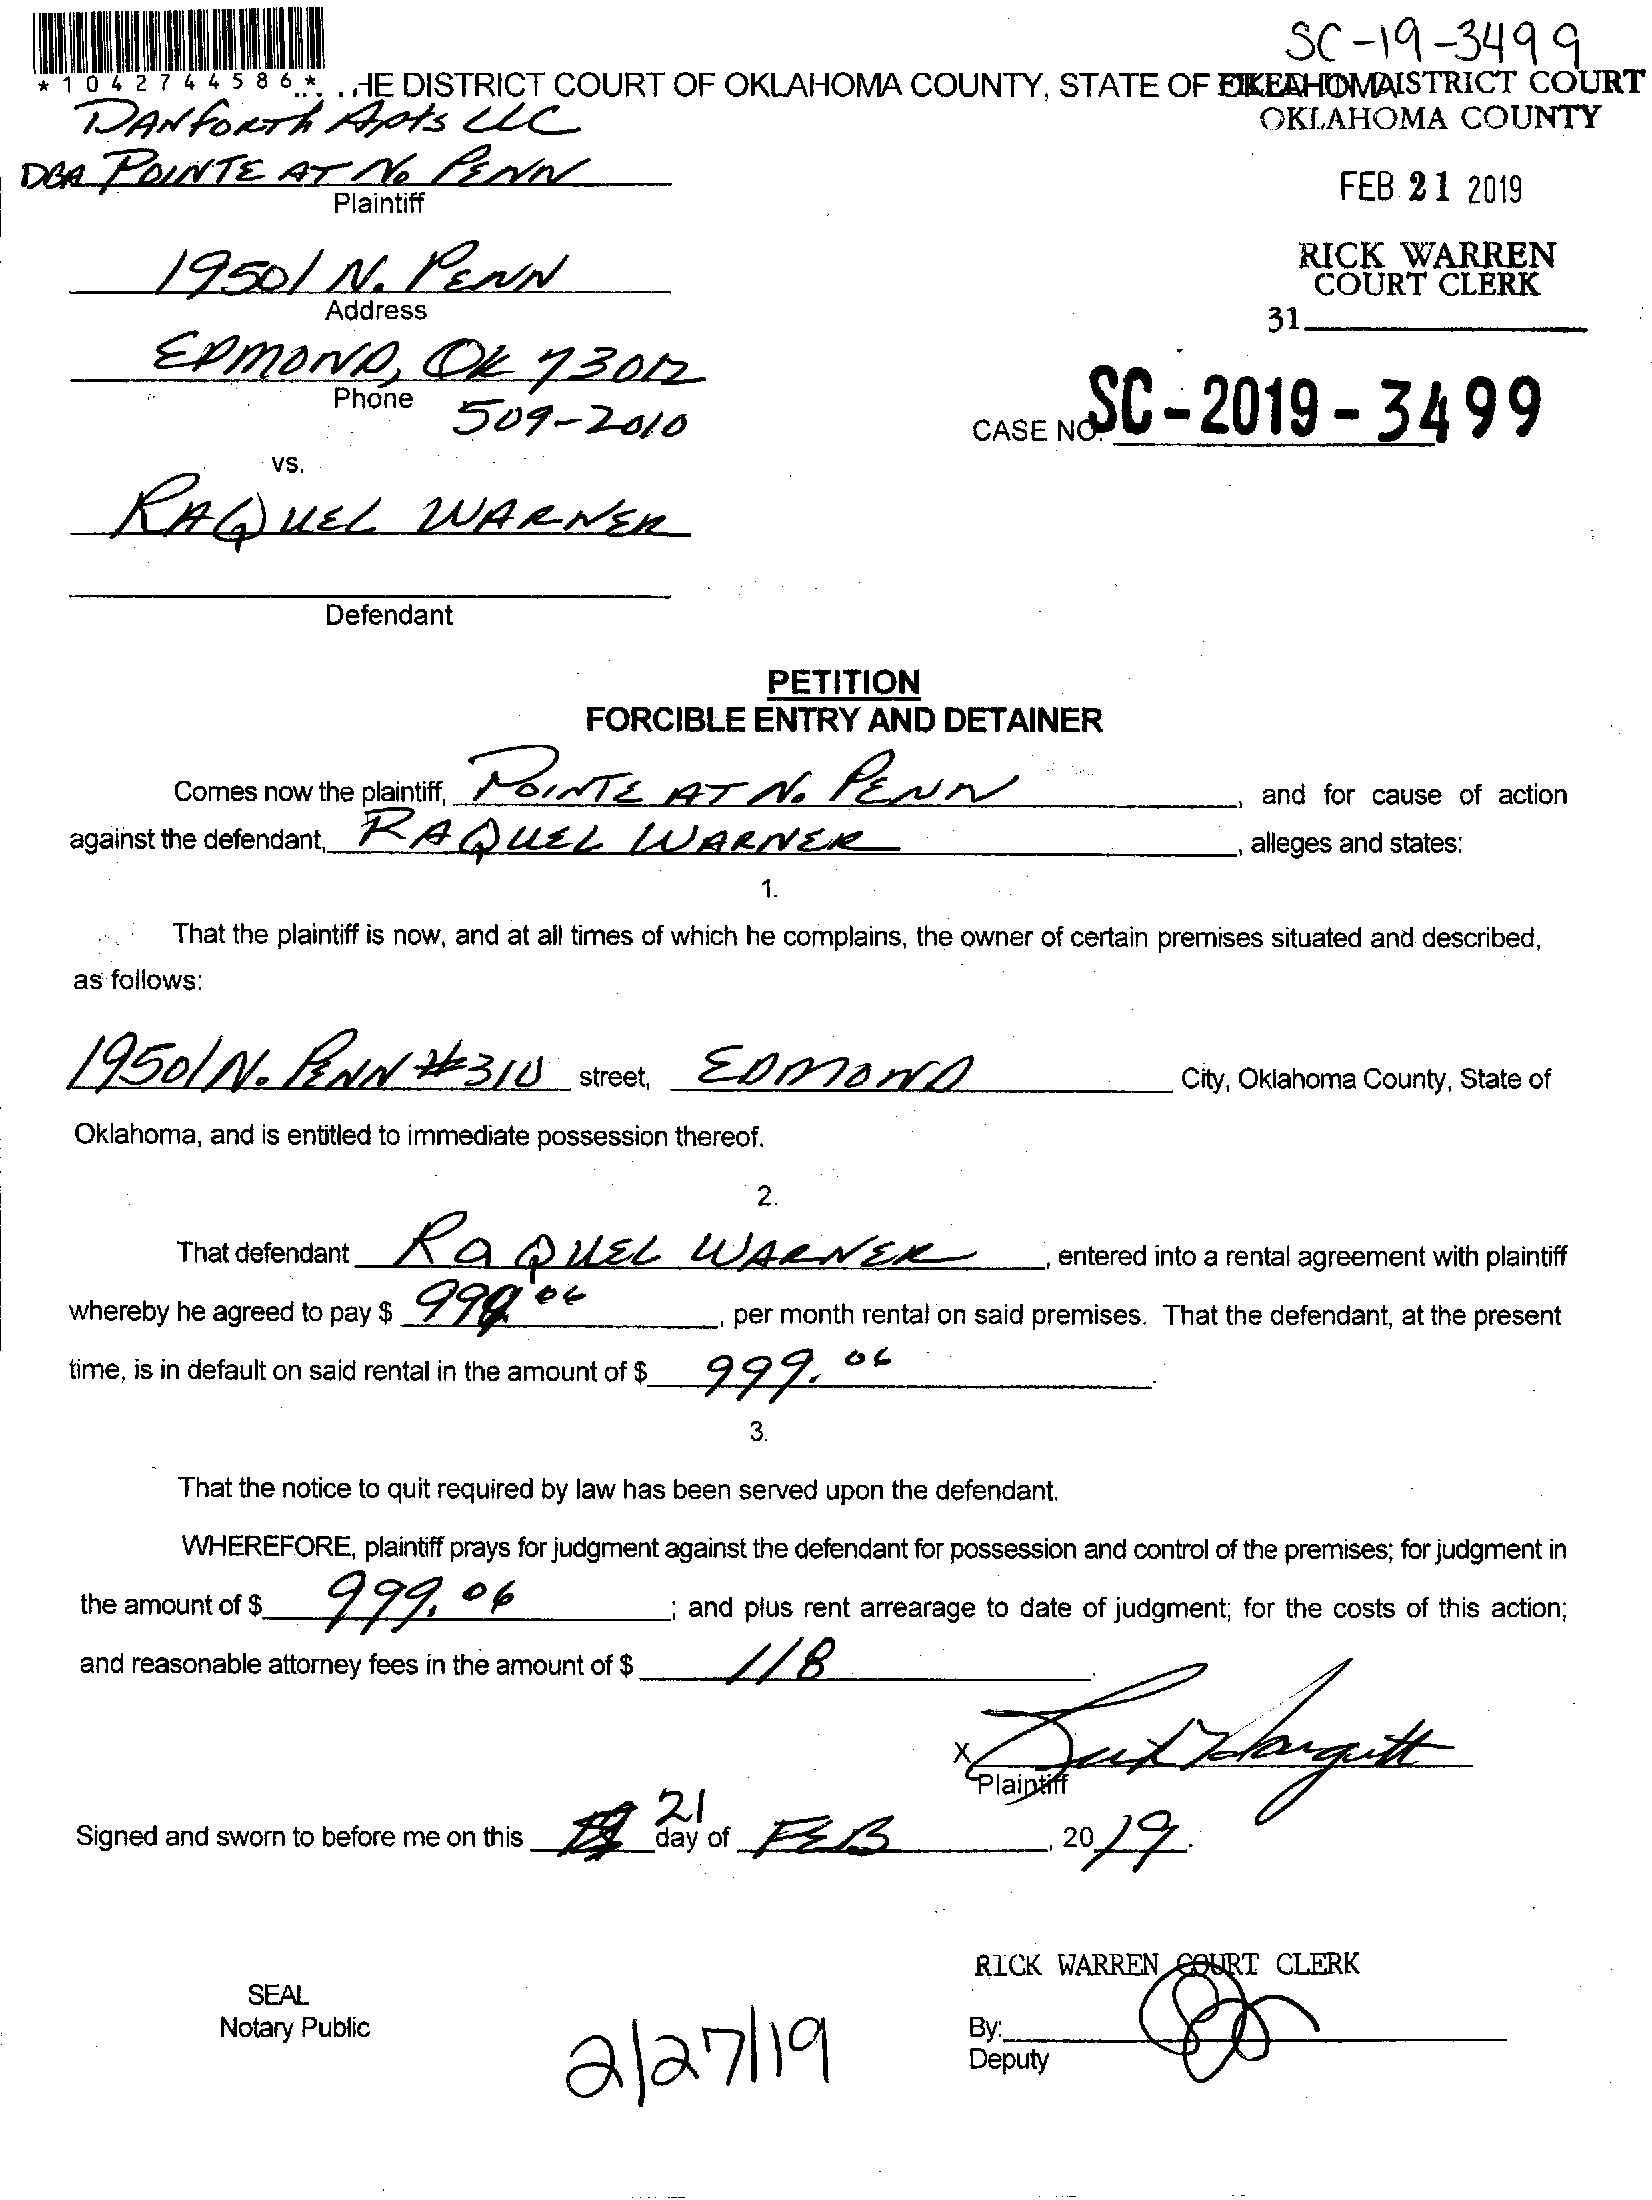 SC-19-3499
*1042744586*
HE DISTRICT COURT OF OKLAHOMA COUNTY, STATE OF OKLAHOMA
DISTRICT COURT
OKLAHOMA COUNTY
DANFORTH APTS LLC
DBA POINTE AT No PENN
Plaintiff
FEB 21 2019
19501 N. PENN
Address
RICK WARREN
COURT CLERK
31
EDMOND, OK 73012
Phone 509-2010
CASE NO. SC-2019-3499
vs.
RAQUEL WARNER
Defendant
PETITION
FORCIBLE ENTRY AND DETAINER
Comes now the plaintiff, POINTE AT N. PENN, and for cause of action
against the defendant, RAQUEL WARNER, alleges and states:
1.
That the plaintiff is now, and at all times of which he complains, the owner of certain premises situated and described,
as follows:
19501 N. PENN #310 street, EDMOND City, Oklahoma County, State of
Oklahoma, and is entitled to immediate possession thereof.
2.
That defendant RAQUEL WARNER, entered into a rental agreement with plaintiff
whereby he agreed to pay $ 999.06, per month rental on said premises. That the defendant, at the present
time, is in default on said rental in the amount of $ 999.06.
3.
That the notice to quit required by law has been served upon the defendant.
WHEREFORE, plaintiff prays for judgment against the defendant for possession and control of the premises; for judgment in
the amount of $ 999.06; and plus rent arrearage to date of judgment; for the costs of this action;
and reasonable attorney fees in the amount of $ 118.
X
Plaintiff
Signed and sworn to before me on this 21 day of FEB, 2019.
RICK WARREN COURT CLERK
SEAL
Notary Public
2/27/19
By:
Deputy